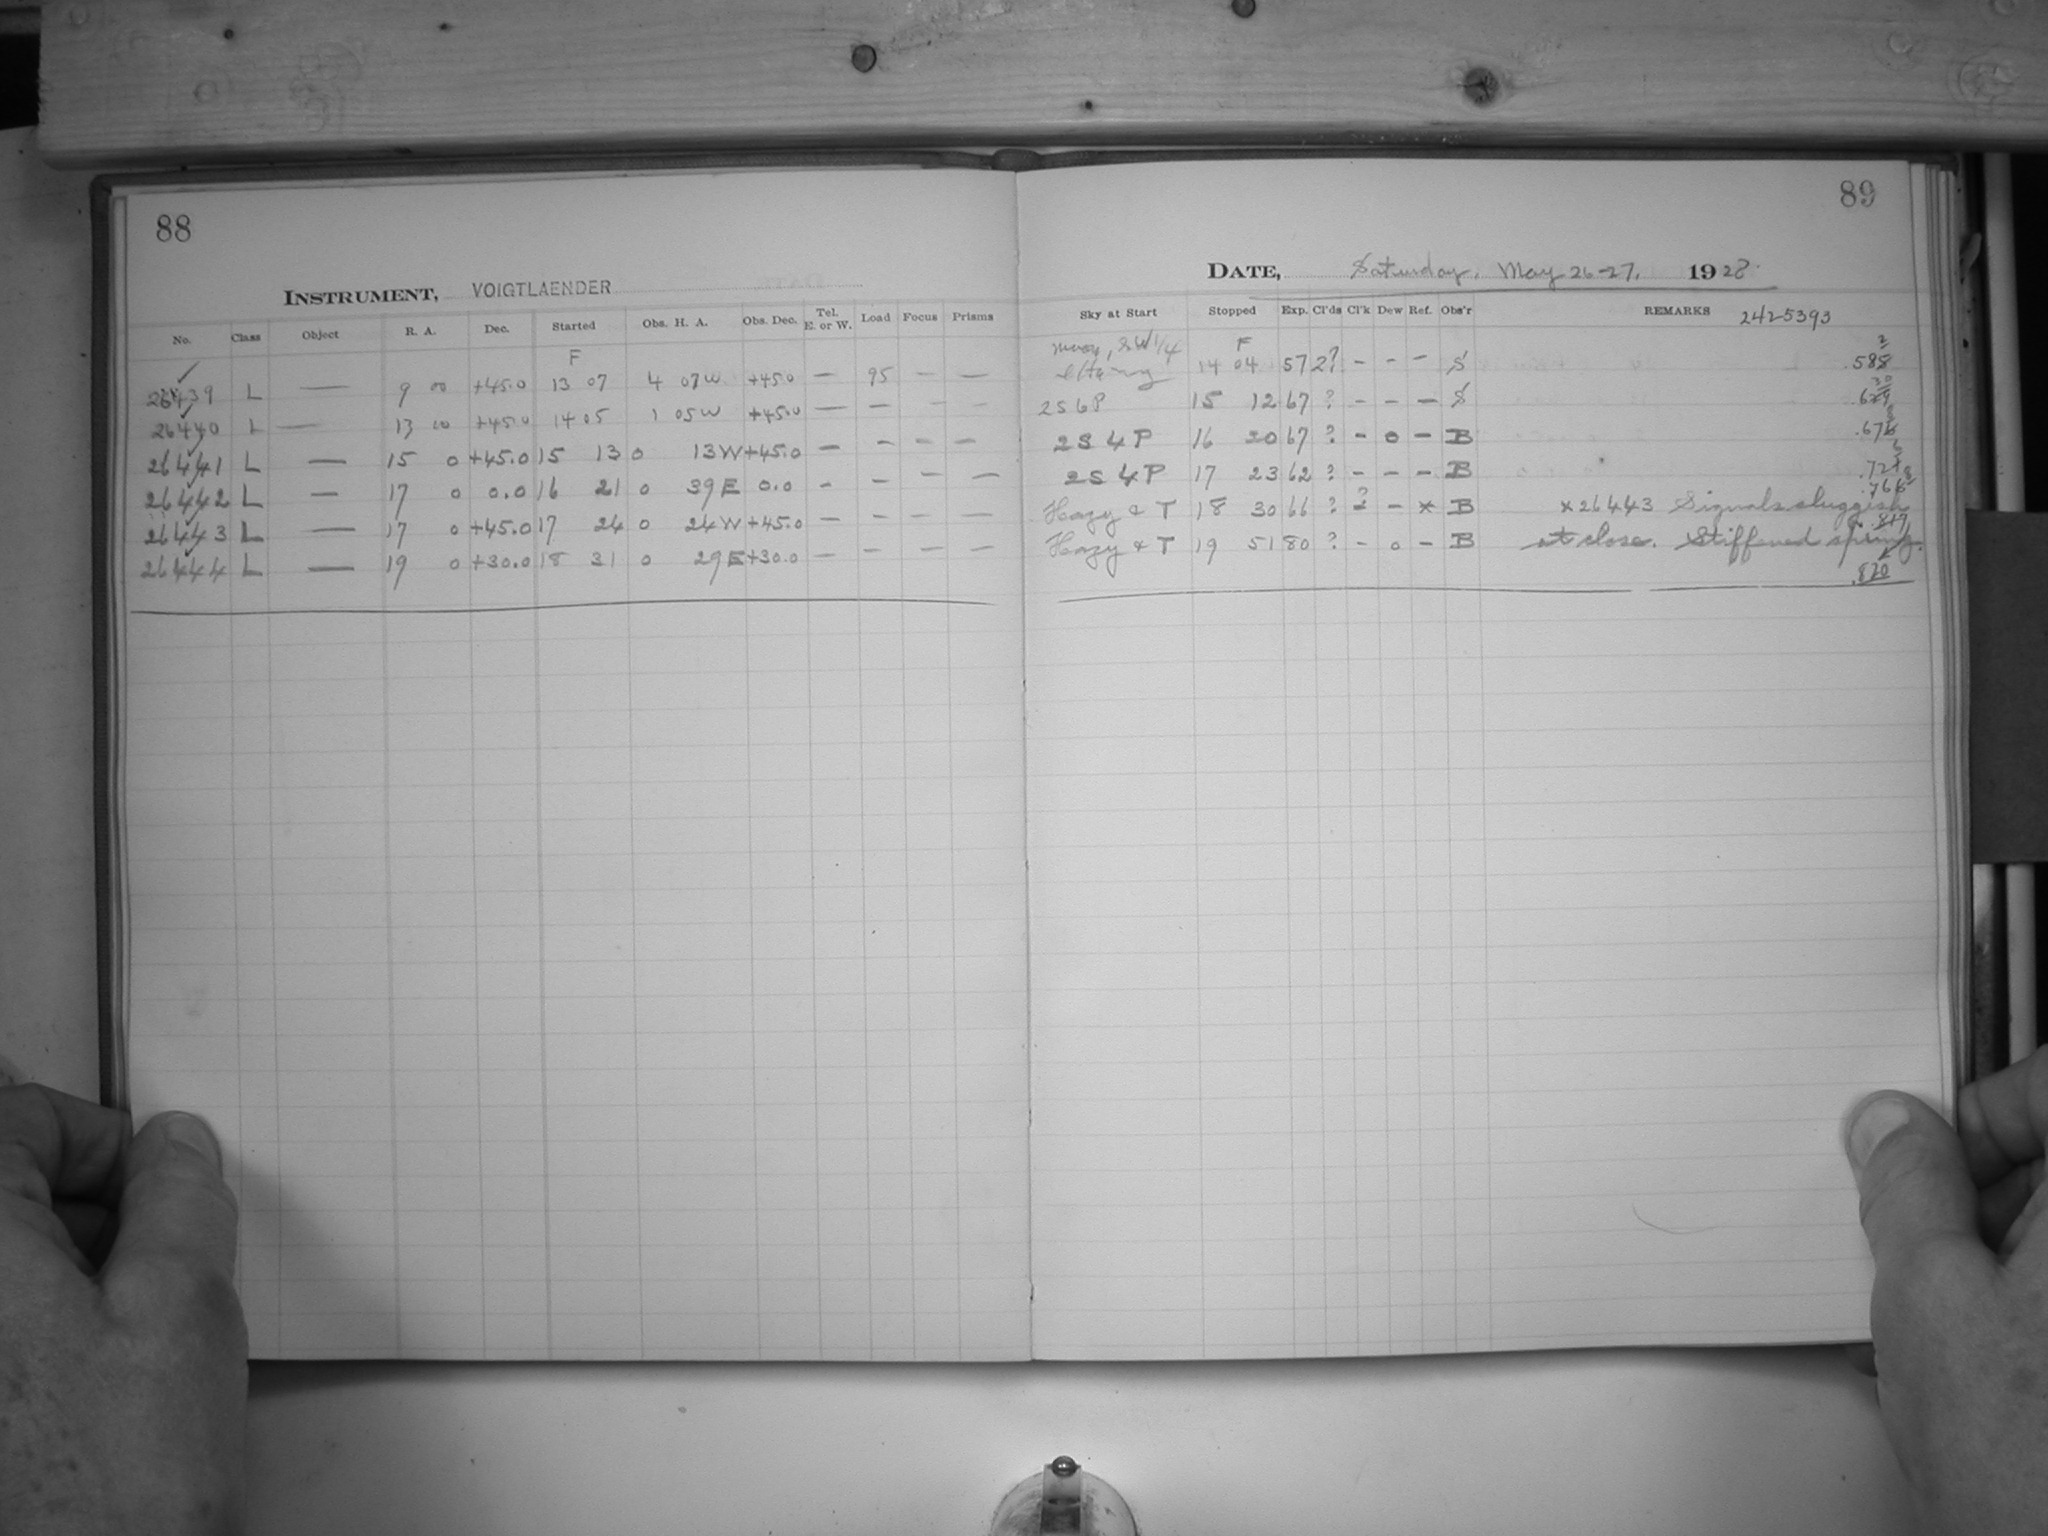 88
INSTRUMENT, VOIGTLAENDER
No. Class Object R. A. Dec. Started Obs. H. A. Obs. Dec. Tel. E. or W. Load Focus Prisms
F
26439 L — 9 00 +45.0 13 07 4 07W +45.0 — 95 — —
26440 L — 13 00 +45.0 14 05 1 05W +45.0 — — — —
26441 L — 15 0 +45.0 15 13 0 13W +45.0 — — — —
26442 L — 17 0 0.0 16 21 0 39E 0.0 - - — —
26443 L — 17 0 +45.0 17 24 0 24W +45.0 — — — —
26444 L — 19 0 +30.0 18 31 0 29E +30.0 — — — —
89
DATE, Saturday, May 26-27, 1928.
Sky at Start Stopped Exp. Cl'ds Cl'k Dew Ref. Obs'r REMARKS 2425393
Moon, SW 1/4 F
Hazy 14 04 57 2? - - - S .585
2S6P 15 12 67 ? - - - S
2S 4P 16 20 67 ? - o - B
2S 4P 17 23 62 ? - - - B
Hazy & T 18 30 66 ? ? - * B *26443 Signals sluggish
Hazy & T 19 51 80 ? - o - B at close. Stiffened spring.
.817
.820